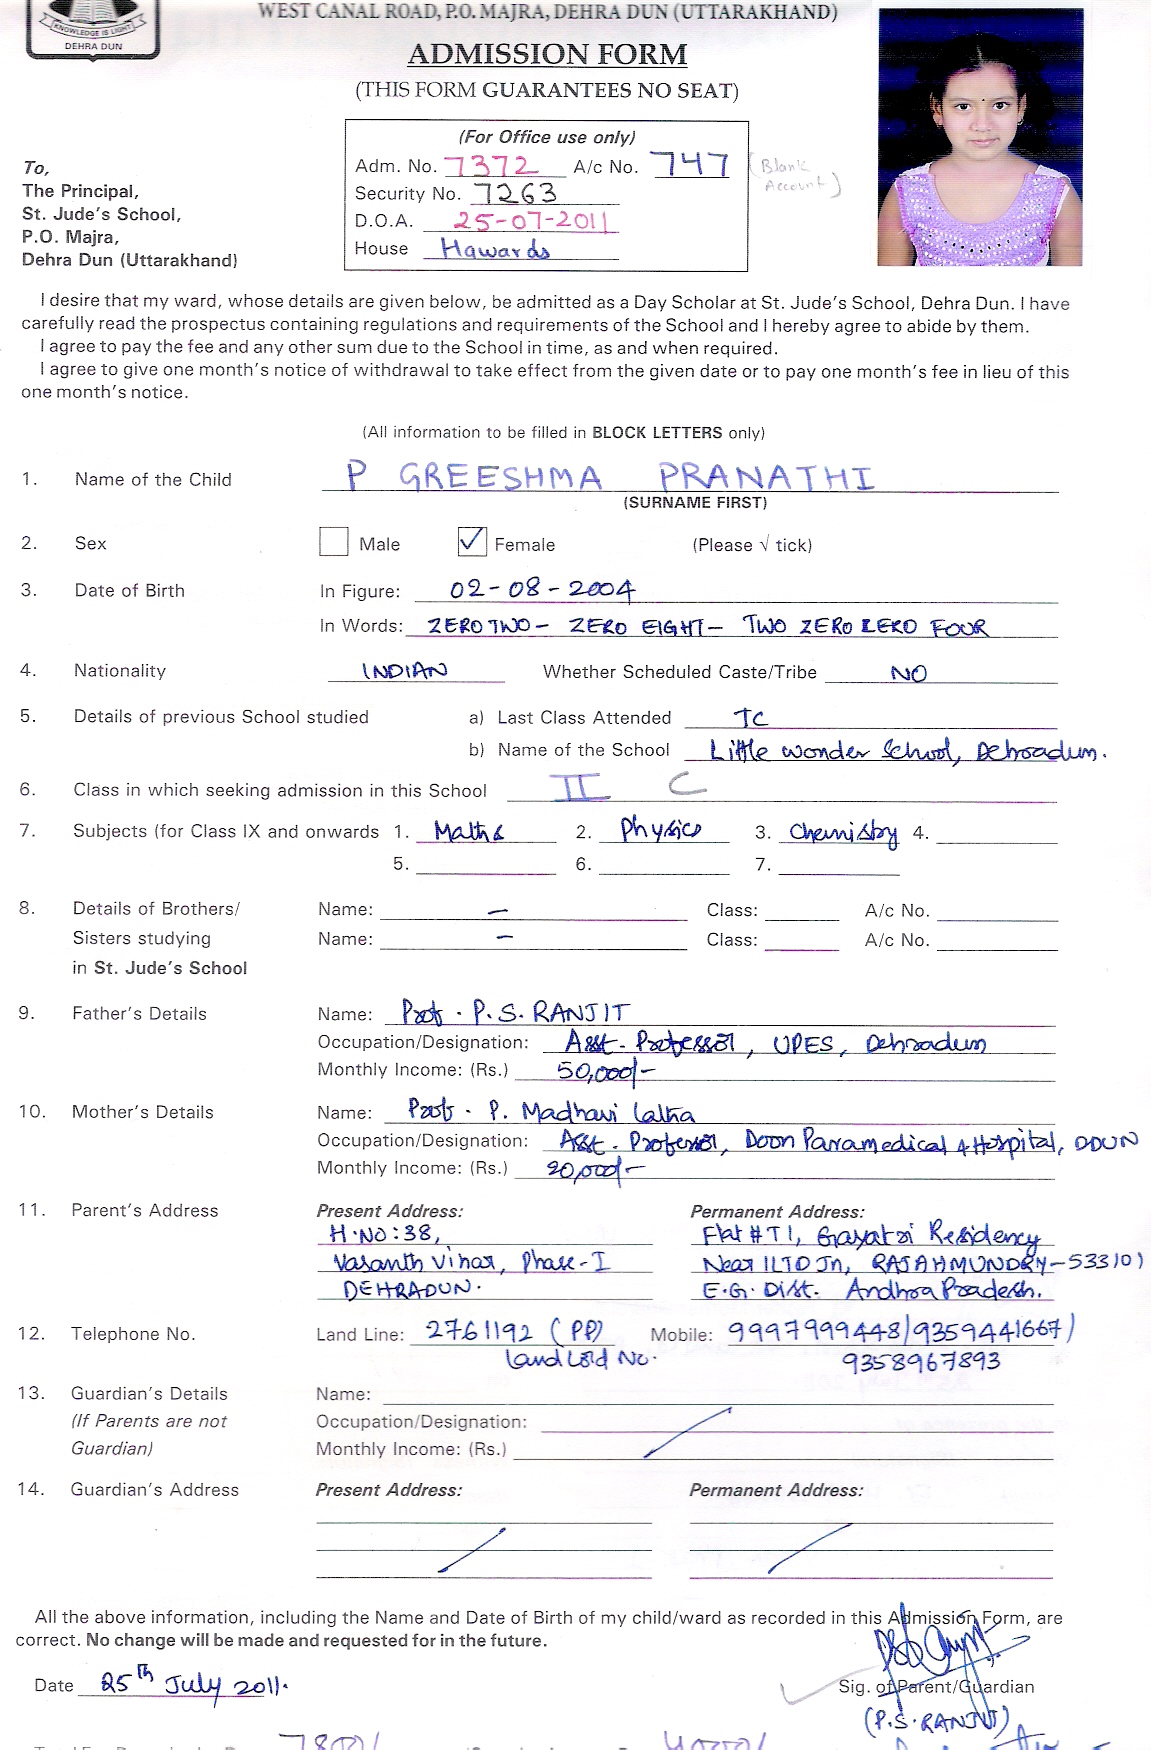 KNOWLEDGE IS LIGHT
DEHRA DUN
WEST CANAL ROAD, P.O. MAJRA, DEHRA DUN (UTTARAKHAND)
ADMISSION FORM
(THIS FORM GUARANTEES NO SEAT)
(For Office use only)
Adm. No. 7372 A/c No. 747 (Blank Account)
Security No. 7263
D.O.A. 25-07-2011
House Hawards
To,
The Principal,
St. Jude's School,
P.O. Majra,
Dehra Dun (Uttarakhand)
I desire that my ward, whose details are given below, be admitted as a Day Scholar at St. Jude's School, Dehra Dun. I have
carefully read the prospectus containing regulations and requirements of the School and I hereby agree to abide by them.
I agree to pay the fee and any other sum due to the School in time, as and when required.
I agree to give one month's notice of withdrawal to take effect from the given date or to pay one month's fee in lieu of this
one month's notice.
(All information to be filled in BLOCK LETTERS only)
1. Name of the Child P GREESHMA PRANATHI
(SURNAME FIRST)
2. Sex Male ✓ Female (Please √ tick)
3. Date of Birth In Figure: 02-08-2004
In Words: ZERO TWO - ZERO EIGHT - TWO ZERO ZERO FOUR
4. Nationality INDIAN Whether Scheduled Caste/Tribe NO
5. Details of previous School studied a) Last Class Attended TC
b) Name of the School Little wonder School, Dehradun.
6. Class in which seeking admission in this School II C
7. Subjects (for Class IX and onwards 1. Maths 2. Physics 3. Chemistry 4.
5. 6. 7.
8. Details of Brothers/ Name: – Class: A/c No.
Sisters studying Name: – Class: A/c No.
in St. Jude's School
9. Father's Details Name: Prof. P.S. RANJIT
Occupation/Designation: Asst. Professor, UPES, Dehradun
Monthly Income: (Rs.) 50,000/-
10. Mother's Details Name: Prof. P. Madhavi Latha
Occupation/Designation: Asst. Professor, Doon Paramedical & Hospital, DDUN
Monthly Income: (Rs.) 20,000/-
11. Parent's Address Present Address: Permanent Address:
H.NO:38, Flat # T1, Gayatri Residency
Vasanth Vihar, Phase-I Near ILTD Jn, RAJAHMUNDRY-533101
DEHRADUN. E.G. Dist. Andhra Pradesh.
12. Telephone No. Land Line: 2761192 (PP) Mobile: 9997999448/9359441667/
Land Lord No. 9358967893
13. Guardian's Details Name:
(If Parents are not Occupation/Designation:
Guardian) Monthly Income: (Rs.)
14. Guardian's Address Present Address: Permanent Address:
All the above information, including the Name and Date of Birth of my child/ward as recorded in this Admission Form, are
correct. No change will be made and requested for in the future.
Date 25th July 2011. Sig. of Parent/Guardian
(P.S. RANJIT)